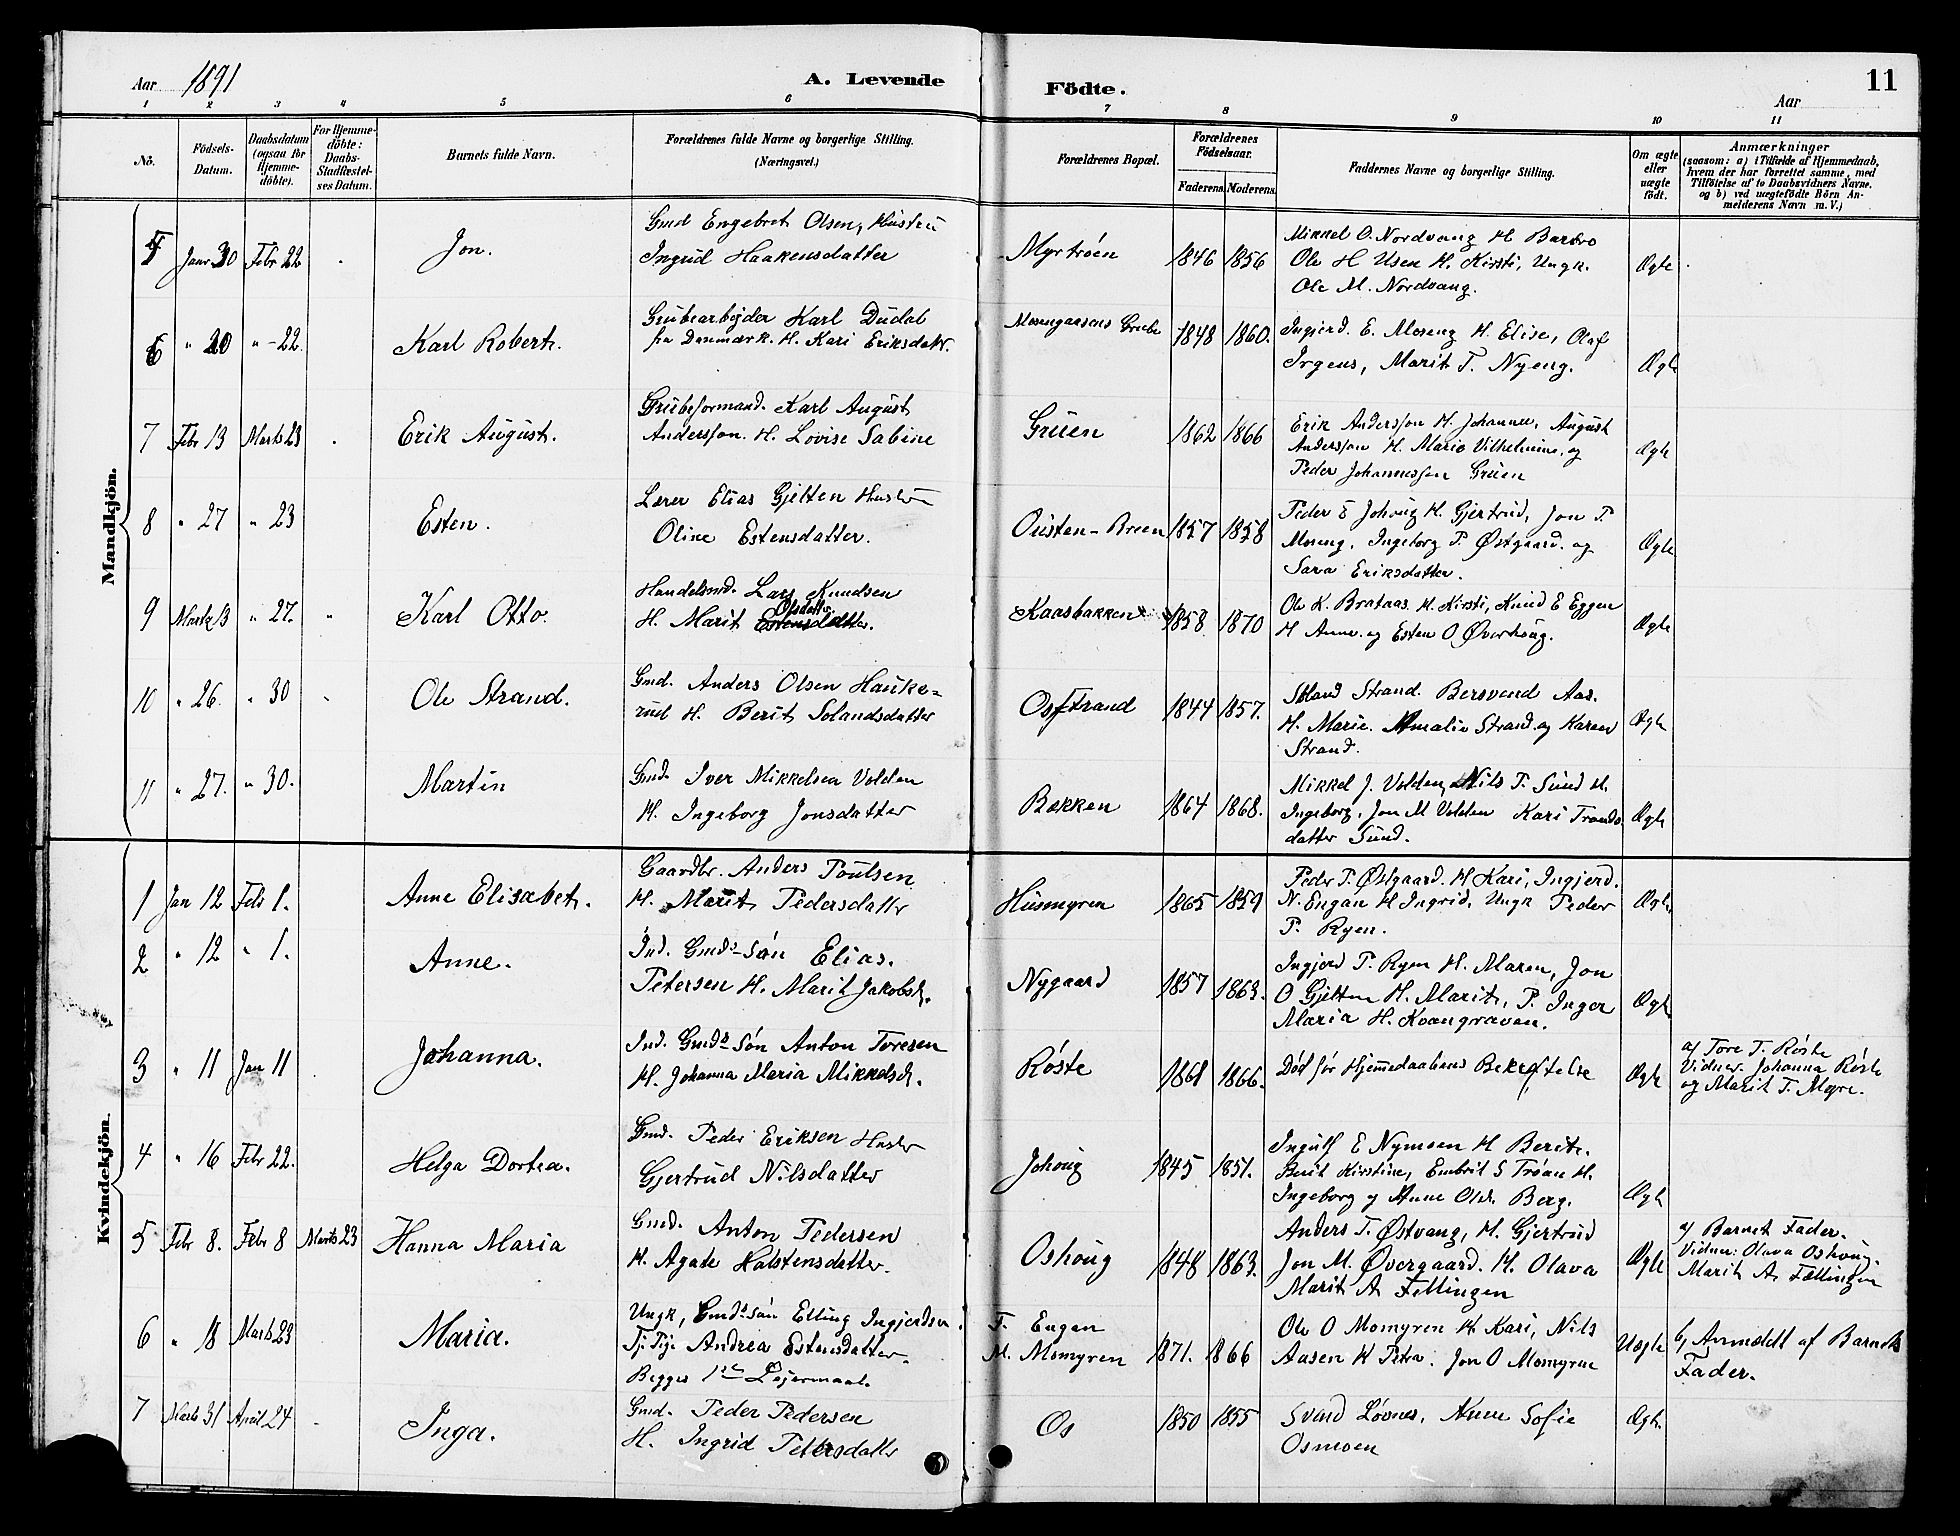 Aar 1891
A. Levende Födte.
Aar
11
1 2 3 4 5 6 7 8 9 10 11
No.
Födsels-Datum.
Daabsdatum (ogsaa for Hjemme-döbte).
For Hjemme-döbte: Daabs-Stadfæstel-ses Datum.
Barnets fulde Navn.
Forældrenes fulde Navne og borgerlige Stilling. (Næringsvei.)
Forældrenes Bopæl.
Forældrenes Födselsaar.
Faderens. Moderens.
Faddernes Navne og borgerlige Stilling.
Om ægte eller uægte födt.
Anmærkninger
(saasom: a) i Tilfælde af Hjemmedaab,
hvem der har forrettet samme, med
Tilföielse af to Daabsvidners Navne.
og b) ved uægtefödte Börn An-
melderens Navn m. V.)
Mandkjön.
5 Janr 30 Febr 22 Jon.
Gmd Engebret Olsen, Hustru
Ingrid Haakensdatter
Myrtröen 1846 1856
Mikkel O. Nordvang H Barbro
Ole H Usen H. Kirsti, Ungk.
Ole M. Nordvang.
Ægte
6 " 20 " - 22. Karl Robert.
Grubearbejder Karl Dudal
fra Danmark. H. Kari Eriksdatr.
Mosengaasens Grube 1848 1860.
Ingierd. E. Moseng H. Elise, Olaf
Irgens, Marit T. Nyeng.
Ægte
7 Febr 13 Marts 23 Erik August.
Grubeformand. Karl August
Andersson. H. Lovise Sabine
Gruen 1862 1866
Erik Andersson H. Johanne, August
Andersson H. Marie Vilhelmine. og
Peder Johannesson Gruen
Ægte
8 " 27 " 23 Esten.
Lærer Elias Gjelten Hustru
Oline Estensdatter.
Ousten-Breen 1857 1858
Peder E Johoug H. Gjertrud, Jon P.
Moseng, Ingeborg P. Østgaard. og
Sara Eriksdatter.
Ægte
9 Marts 13 " 27. Karl Otto.
Handelsmd. Lars Knudsen
H. Marit Olsdatter Estensdatter.
Kaasbakken 1858 1870
Ole K. Brataas. H. Kirsti, Knud E Eggen
H Anne. og Esten O Øverhoug.
Ægte
10 " 26. " 30 Ole Strand.
Gmd. Anders Olsen Hauke-
rud H. Berit Solandsdatter
Osstrand 1844 1857.
Soland Strand. Bersvend Aas.
H. Marie. Amalie Strand. og Karen
Strand.
Ægte
11 " 27. " 30. Martin
Gmd. Iver Mikkelsen Volden
H. Ingeborg Jonsdatter
Bekken 1864 1868.
Mikkel J. Volden, Nils T. Sund H.
Ingeborg, Jon M Volden Kari Tronds
datter Sund.
Ægte
Kvindekjön.
1 Jan 12 Feb 1. Anne Elisabet.
Gaardbr. Anders Poulsen
H. Marit Pedersdatter
Husmyren 1865 1859
Peder P. Østgaard. H Kari, Ingjerd.
N. Engan H Ingrid, Ungk Peder
P. Ryen.
Ægte
2 " 12 " 1. Anne.
Ind. Gmds-søn Elias.
Petersen H. Marit Jakobsd.
Nygaard 1857 1863.
Ingjerd P. Ryen H. Maren, Jon
O Gjelten H. Marit, P. Inger
Maria H. Kvangraven.
Ægte
3 " 11 Jan 11 Johanna.
Ind. Gmds Søn Anton Toresen
H. Johanna Maria Mikkelsd.
Røste 1861 1866.
Död før Hjemmedaabens Bekræftelse
Ægte
a/ Tore T. Røste
Vidner. Johanna Røste
og Marit T. Myre.
4 " 16 Febr 22. Helga Dortea.
Gmd. Peder Eriksen Hustr
Gjertrud Nilsdatter
Johoug 1845 1851.
Ingulf E Nymoen H Berit.
Berit Kirstine, Embrit S Trøan H.
Ingeborg og Anne Olsd. Berg.
Ægte
5 Febr 8. Febr 8 Marts 23 Hanna Maria
Gmd. Anton Pedersen
H. Agate Halstensdatter.
Oshoug 1848 1863.
Anders T. Østvang, H. Gjertrud
Jon M. Øvergaard. H. Olava
Marit A Fellingen
Ægte
a/ Barnets Fader.
Vidner: Olava Oshoug
Marit A. Fællingen
6 " 18 Marts 23 Maria.
Ungk, Gmds søn Elling Ingjerdsen.
Tj. Pige Andrea Estensdatter.
Begges 1ste Lejermaal.
F. Engan
M. Momyren 1871. 1866
Ole O Momyren H Kari, Nils
Aasen H Petra. Jon O Momyren
Uægte
b/ Anmeldt af Barnets
Fader.
7 Marts 31 April 24 Inga.
Gmd. Peder Pedersen
H. Ingrid Petersdatter
Os 1850 1855
Svend Løvnes, Anne Sofie
Osmoen
Ægte.